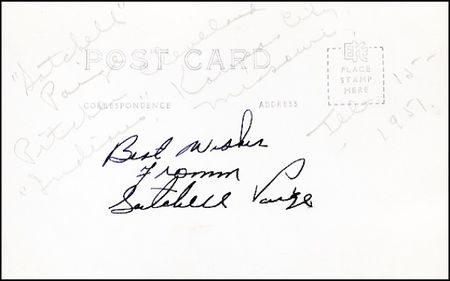 "Satchell"
Paige, Cleveland
Pitcher, Kansas City,
"Indians" Missouri
POST CARD
EKC
PLACE
STAMP
HERE
CORRESPONDENCE
ADDRESS
15-
1951.
Best Wishes
Fromm
Satchell Paige